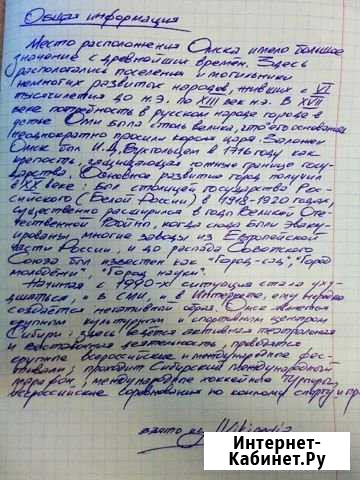 Общая информация
Место расположения Омска имело большое
значение с древнейших времён. Здесь
располагались поселения и могильники
немногих развитых народов, живших с VI
тысячелетия до н.э. по XIII век н.э. В XVII
веке потребность в русском народе города в
устье Оми была столь велика, что его основания
неоднократно просили короля царя. Заложен
Омск был И.Д. Бухгольцем в 1716 году как
крепость, защищающая южные границе госу-
дарства. Основное развитие город получил
в XX веке: был столицей государства Рос-
сийского (Белой России) в 1918-1920 годах,
существенно расширился в годы Великой Оте-
чественной Войны, когда сюда были эваку-
ированы многие заводы из Европейской
части России, и до распада Советского
Союза был известен как "Город-сад", "Город
молодёжи", "Город науки".
Начиная с 1990-х ситуация стала уху-
дшаться, и в СМИ, и в Интернете, ему нередко
создаётся негативный образ. Омск является
крупным культурным и спортивным центром
Сибири: здесь ведётся активная театральная
и выставочная деятельность, проводятся
крупные всероссийские и международные фес-
тивали; проходит Сибирский международный
марафон, международные хоккейные турниры,
всероссийские соревнования по конному спорту и пр.
взято из Wikipedia
Интернет-
Кабинет.Ру